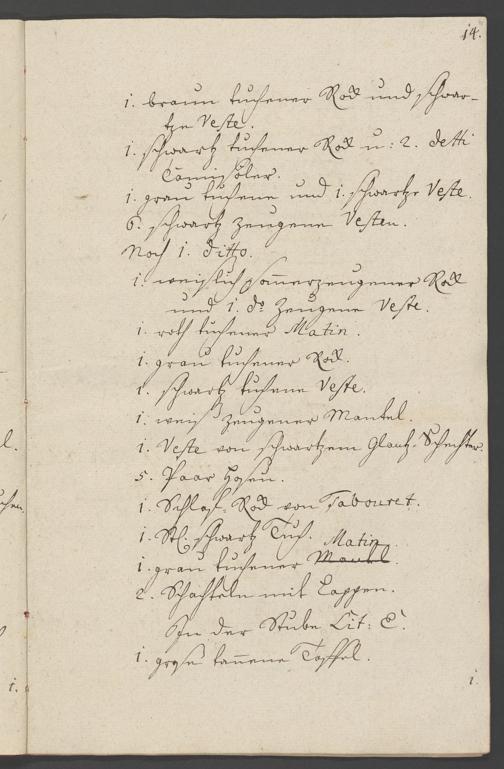 14.
1. braun tuchener Rock und schwar-
tze Veste.
1. schwartz tuchener Rock u: 2. detti
Camisöler.
1. grau tuchene und 1. schwartze Veste.
6. schwartz zeugene Vesten.
Noch 1. ditto.
1. weißlich som̄erzeugener Rock
und 1. do zeugene Veste.
1. roth tuchener Matin.
1. grau tuchener Rock.
1. schwartz tuchene Veste.
1. weiß zeugener Mantel.
1. Veste von schwartzem Glantz-Schechter.
5. Paar Hosen.
1. Schlaf-Rock von Tabouret.
1. Stl. schwartz Tuch.
Matin
1. grau tuchener Mantel.
2. Schachteln mit Lappen.
In der Stube Lit: C.
1. große tan̄ene Taffel.
1.